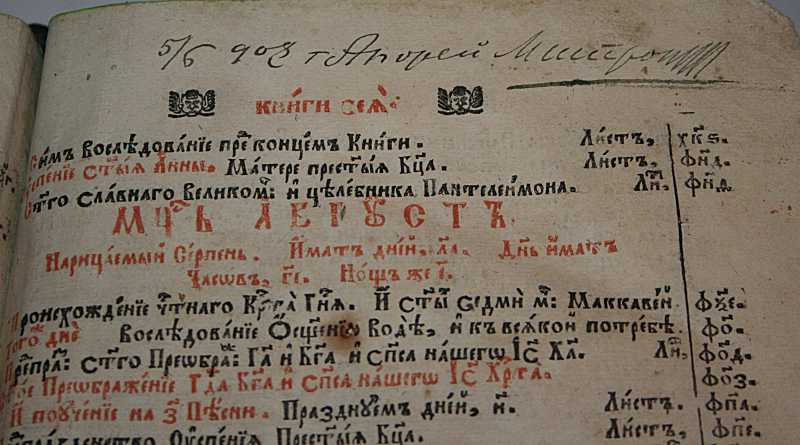 Андрей
КНИ́ГИ СЕѦ̀:
Си́мъ Восле́дованїе пре́ концемъ Кни́ги. Ли́стъ, хк҃ѕ.
Оуспенїе Ст҃ы́ѧ А́нны. Ма́тере прест҃ы́ѧ Бц҃а. Ли́стъ, фн҃д.
Ст҃го сла́внаго Великом: и҆ цѣле́бника Пантелеи́мона. Ли, фн҃д
МЦ҃Ъ А҆́ВГУСТЪ
Нарица́емый Се́рпень. И҆́мать дні́й, л҃а. Дн҃ь и҆́мать
Часѡ́въ, г҃і. Но́щъ же і҃.
Происхожде́нїе чт҃наго Крⷭ҇та̀ Гн҃ѧ. И҆ ст҃ы́ седми́ м҃: Маккаве́й.
Того́ дне Восле́дованїе Ѡ҆сщ҃енїю Водѣ̀, и҆ къ всѧ́кой потре́бѣ. фо҃.
Препра́: ст҃го Преѡбра́: Гд҃а и҆ Бг҃а и҆ сп҃са на́шегѡ І҆с҃ Хл. Ли, фо҃д.
Преѡбраже́нїе Гд҃а Бг҃а и҆ сп҃са на́шегѡ І҆с҃ Хрⷭ҇та. фо҃з.
И҆ поуче́нїе на з҃ Пѣ́сни. Пра́зднуемъ дні́й, и҃. Ли́стъ, фп҃а.
Оу҆спе́нїѧ Прест҃ы́ѧ Бц҃а. Ли́стъ, фп҃е.